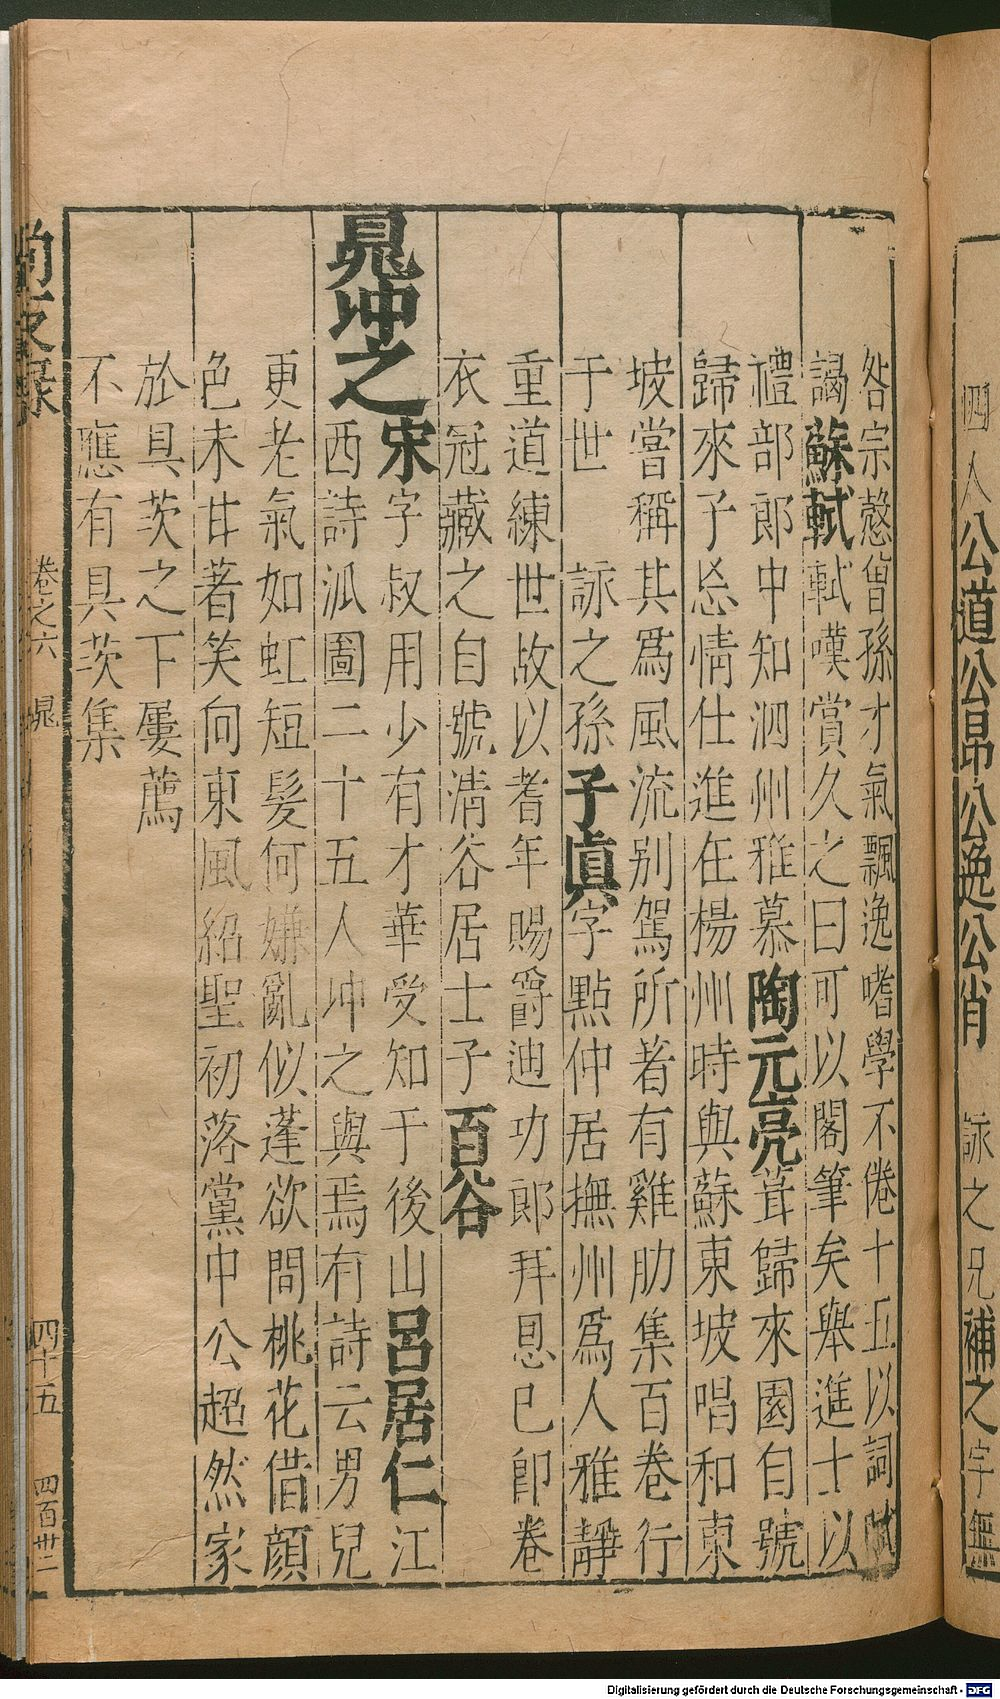 四人公道公昂公逸公肖 詠之兄補之字無
咎宗慤曾孫才氣飄逸嗜學不倦十五以詞賦
謁蘇軾軾嘆賞久之曰可以閣筆矣舉進士以
禮部郎中知泗州雅慕陶元亮葺歸來園自號
歸來子忘情仕進在楊州時與蘇東坡唱和東
坡嘗稱其爲風流別駕所著有雞肋集百卷行
于世 詠之孫子眞字點仲居撫州爲人雅靜
重道練世故以耆年賜爵迪功郎拜恩已卽卷
衣冠藏之自號清谷居士子百谷
晁冲之宋字叔用少有才華受知于後山呂居仁江
西詩派圖二十五人冲之與焉有詩云男兒
更老氣如虹短髮何嫌亂似蓬欲問桃花借顔
色未甘着笑向東風紹聖初落黨中公超然家
於具茨之下屢薦
不應有具茨集
尚友錄 卷之六 晁 四十五 四百卅二
Digitalisierung gefördert durch die Deutsche Forschungsgemeinschaft - DFG